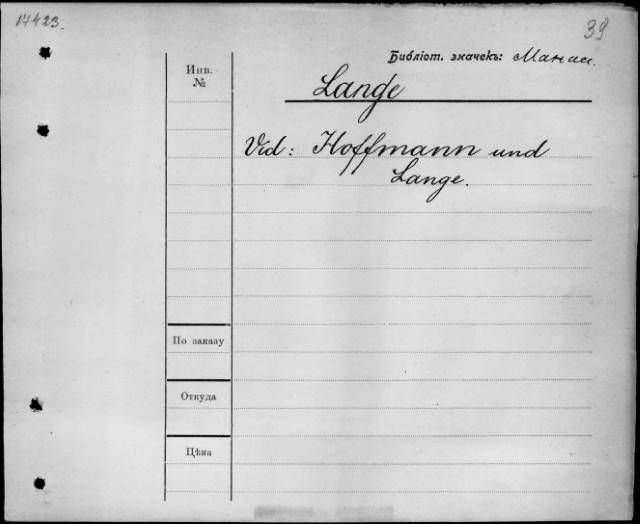 17423.
39
Библіот. значекъ:
Инв.
№
Lange
Vid: Hoffmann und
Lange.
По заказу
Откуда
Цѣна